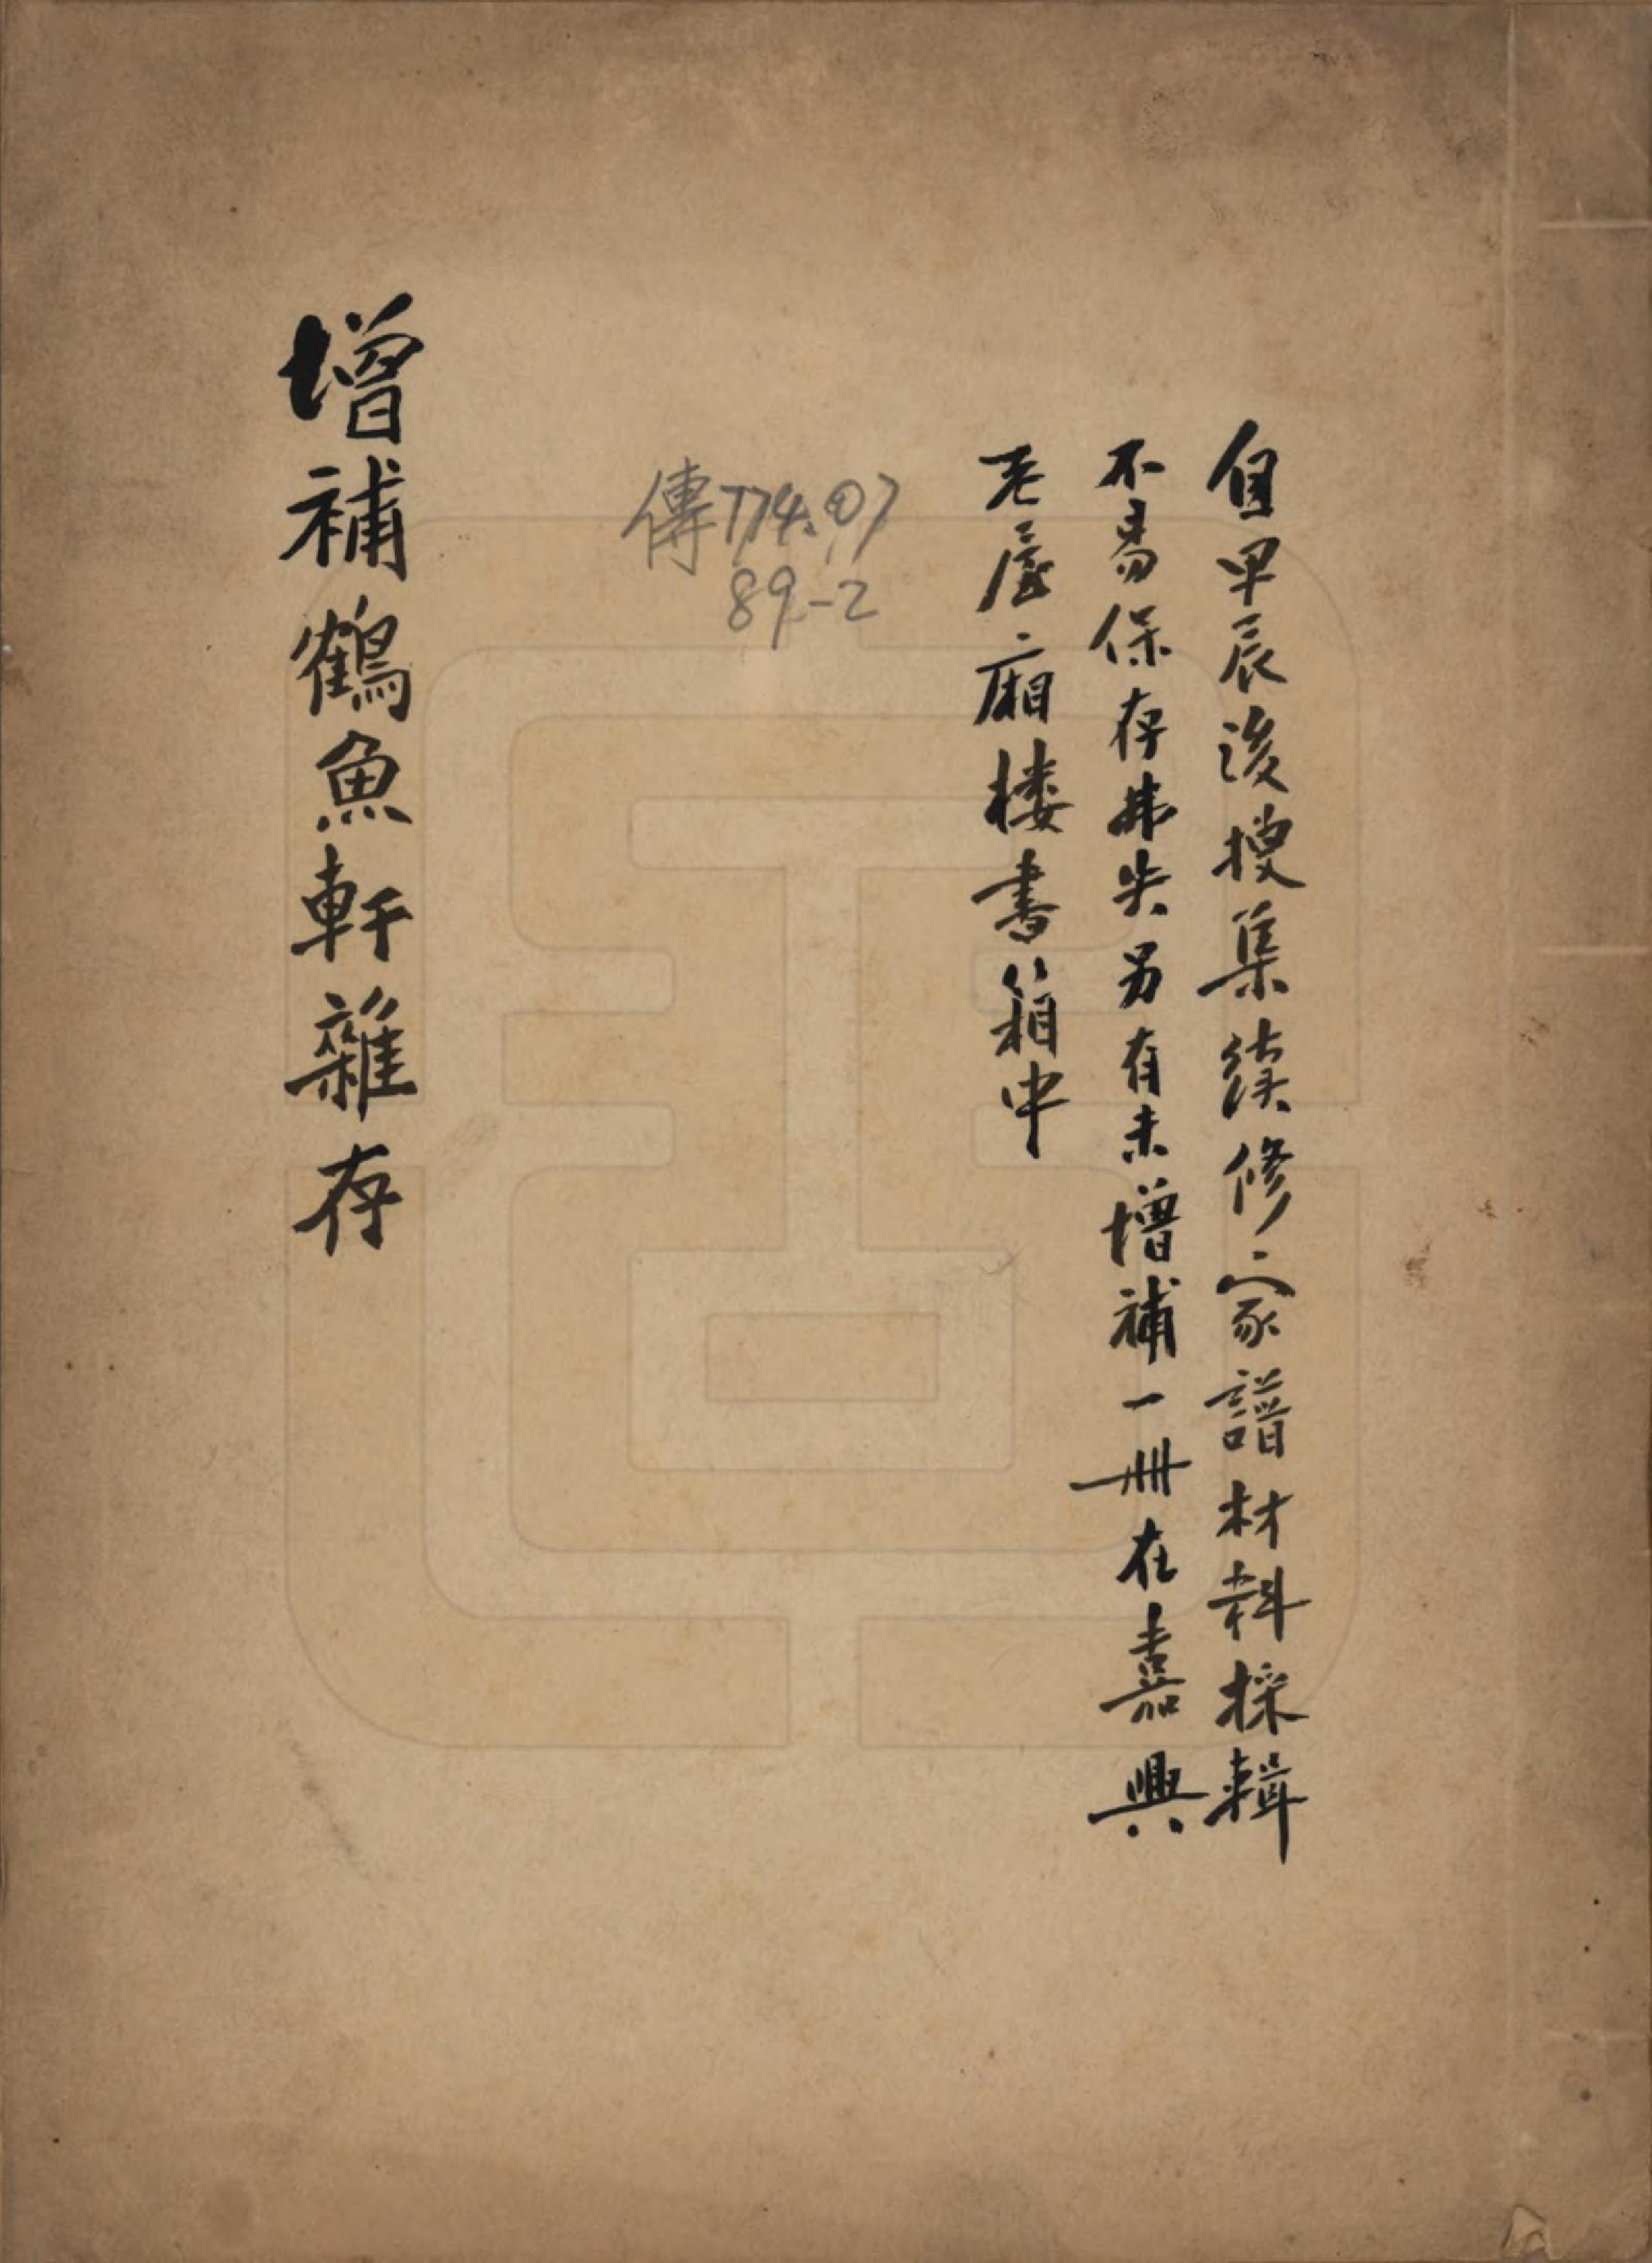 自甲辰後搜集續修家譜材料採輯
不易保存弗失另有未增補一冊在嘉興
老屋廂楼書箱中
傳774.07
89-2
增補鶴魚軒雜存